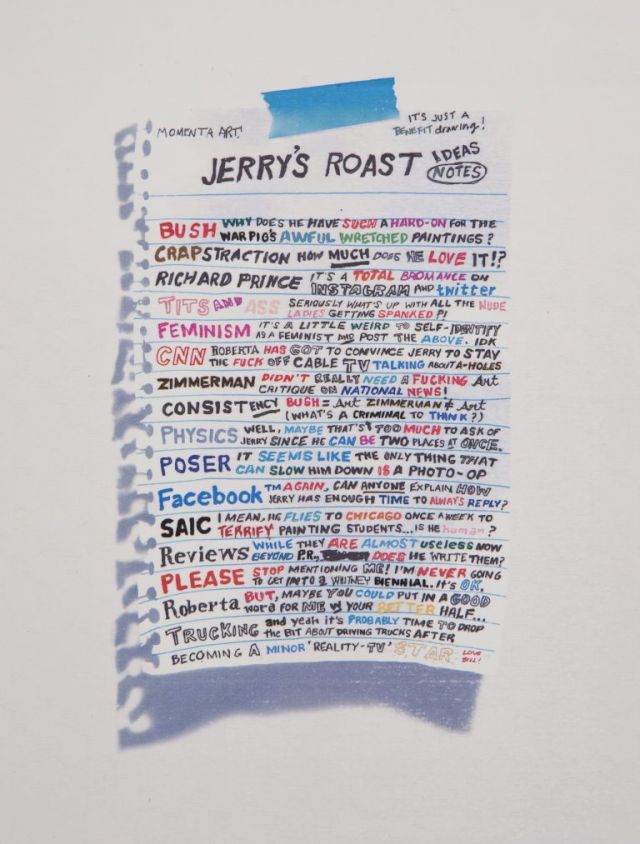 MOMENTA ART!
IT'S JUST A
BENEFIT drawing!
JERRY'S ROAST IDEAS
NOTES
BUSH WHY DOES HE HAVE SUCH A HARD-ON FOR THE
WAR PIG'S AWFUL WRETCHED PAINTINGS?
CRAPSTRACTION HOW MUCH DOES HE LOVE IT!?
RICHARD PRINCE IT'S A TOTAL BROMANCE ON
INSTAGRAM AND twitter
TITS AND ASS SERIOUSLY WHAT'S UP WITH ALL THE NUDE
LADIES GETTING SPANKED?!
FEMINISM IT'S A LITTLE WEIRD TO SELF-IDENTIFY
AS A FEMINIST AND POST THE ABOVE. IDK
CNN ROBERTA HAS GOT TO CONVINCE JERRY TO STAY
THE FUCK OFF CABLE TV TALKING ABOUT A-HOLES
ZIMMERMAN DIDN'T REALLY NEED A FUCKING Art
CRITIQUE ON NATIONAL NEWS!
CONSISTENCY BUSH = Art ZIMMERMAN ≠ Art
(WHAT'S A CRIMINAL TO THINK?)
PHYSICS WELL, MAYBE THAT'S TOO MUCH TO ASK OF
JERRY SINCE HE CAN BE TWO PLACES AT ONCE.
POSER IT SEEMS LIKE THE ONLY THING THAT
CAN SLOW HIM DOWN IS A PHOTO-OP
Facebook TM AGAIN, CAN ANYONE EXPLAIN HOW
JERRY HAS ENOUGH TIME TO ALWAYS REPLY?
SAIC I MEAN, HE FLIES TO CHICAGO ONCE A WEEK TO
TERRIFY PAINTING STUDENTS... IS HE human?
Reviews WHILE THEY ARE ALMOST useless NOW
BEYOND P.R., DOES HE WRITE THEM?
PLEASE STOP MENTIONING ME! I'M NEVER GOING
TO GET INTO a WHITNEY BIENNIAL. IT'S OK.
Roberta BUT, MAYBE YOU COULD PUT IN A GOOD
word FOR ME vs YOUR BETTER HALF...
TRUCKING and yeah it's PROBABLY TIME TO DROP
the BIT ABOUT DRIVING TRUCKS AFTER
BECOMING A MINOR 'REALITY-TV' STAR. LOVE
BILL!